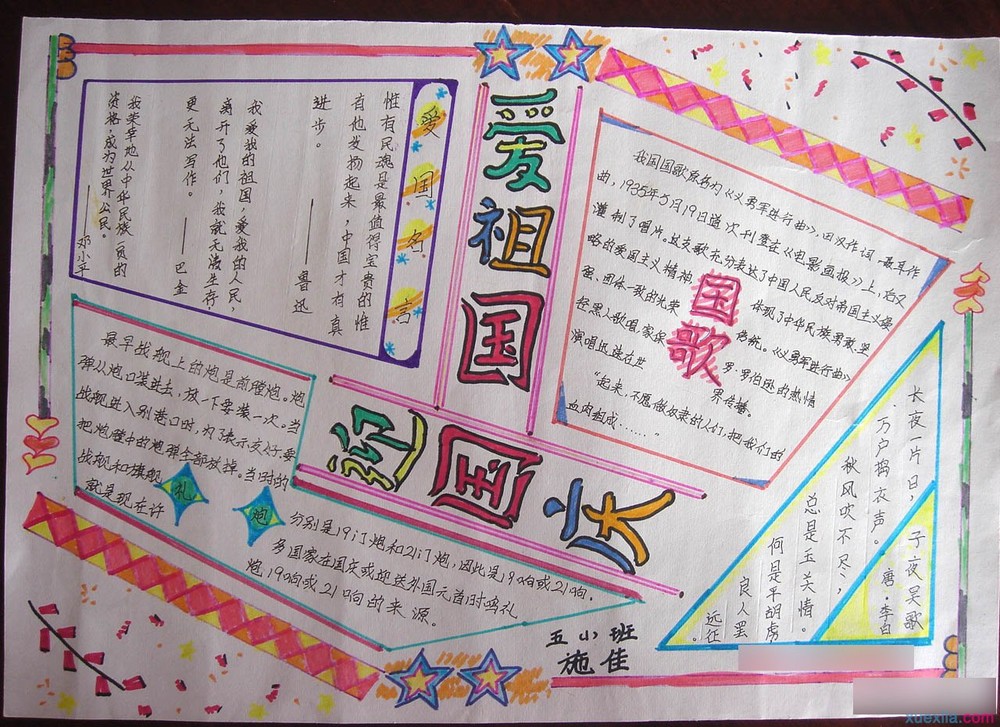 爱祖国
迎国庆
爱国名言
惟有民魂是最值得宝贵的惟
有他发扬起来,中国才有真
进步。
——鲁迅
我爱我的祖国,爱我的人民,
离开了他们,我就无法生存,
更无法写作。——巴金
我荣幸地从中华民族一员的
资格,成为世界公民。
——邓小平
国歌
我国国歌原名为《义勇军进行曲》,田汉作词,聂耳作
曲,1935年5月19日首次刊登在《电影画报》上,后又
灌制了唱片。这支歌充分表达了中国人民反对帝国主义侵
略的爱国主义精神,体现了中华民族勇敢、坚
强、团体一致的光荣传统。《义勇军进行曲》
经黑人歌唱家保罗·罗伯逊的热情
演唱,在世界传播。
“起来,不愿做奴隶的人们,把我们的
血肉组成……”
礼炮
最早战舰上的炮是前膛炮。炮
弹从炮口装进去,放一下要装一次。当
战舰进入别港口时,为了表示友好,要
把炮膛中的炮弹全部放掉。当时的
战舰和旗舰
就是现在许
分别是19门炮和21门炮,因此是19响或21响.
多国家在国庆或迎送外国元首时鸣礼
炮19响或21响的来源。
子夜吴歌
唐·李白
长夜一片日,
万户捣衣声。
秋风吹不尽,
总是玉关情。
何是平胡虏
良人罢
远征。
五小班
施佳
xuexila.com